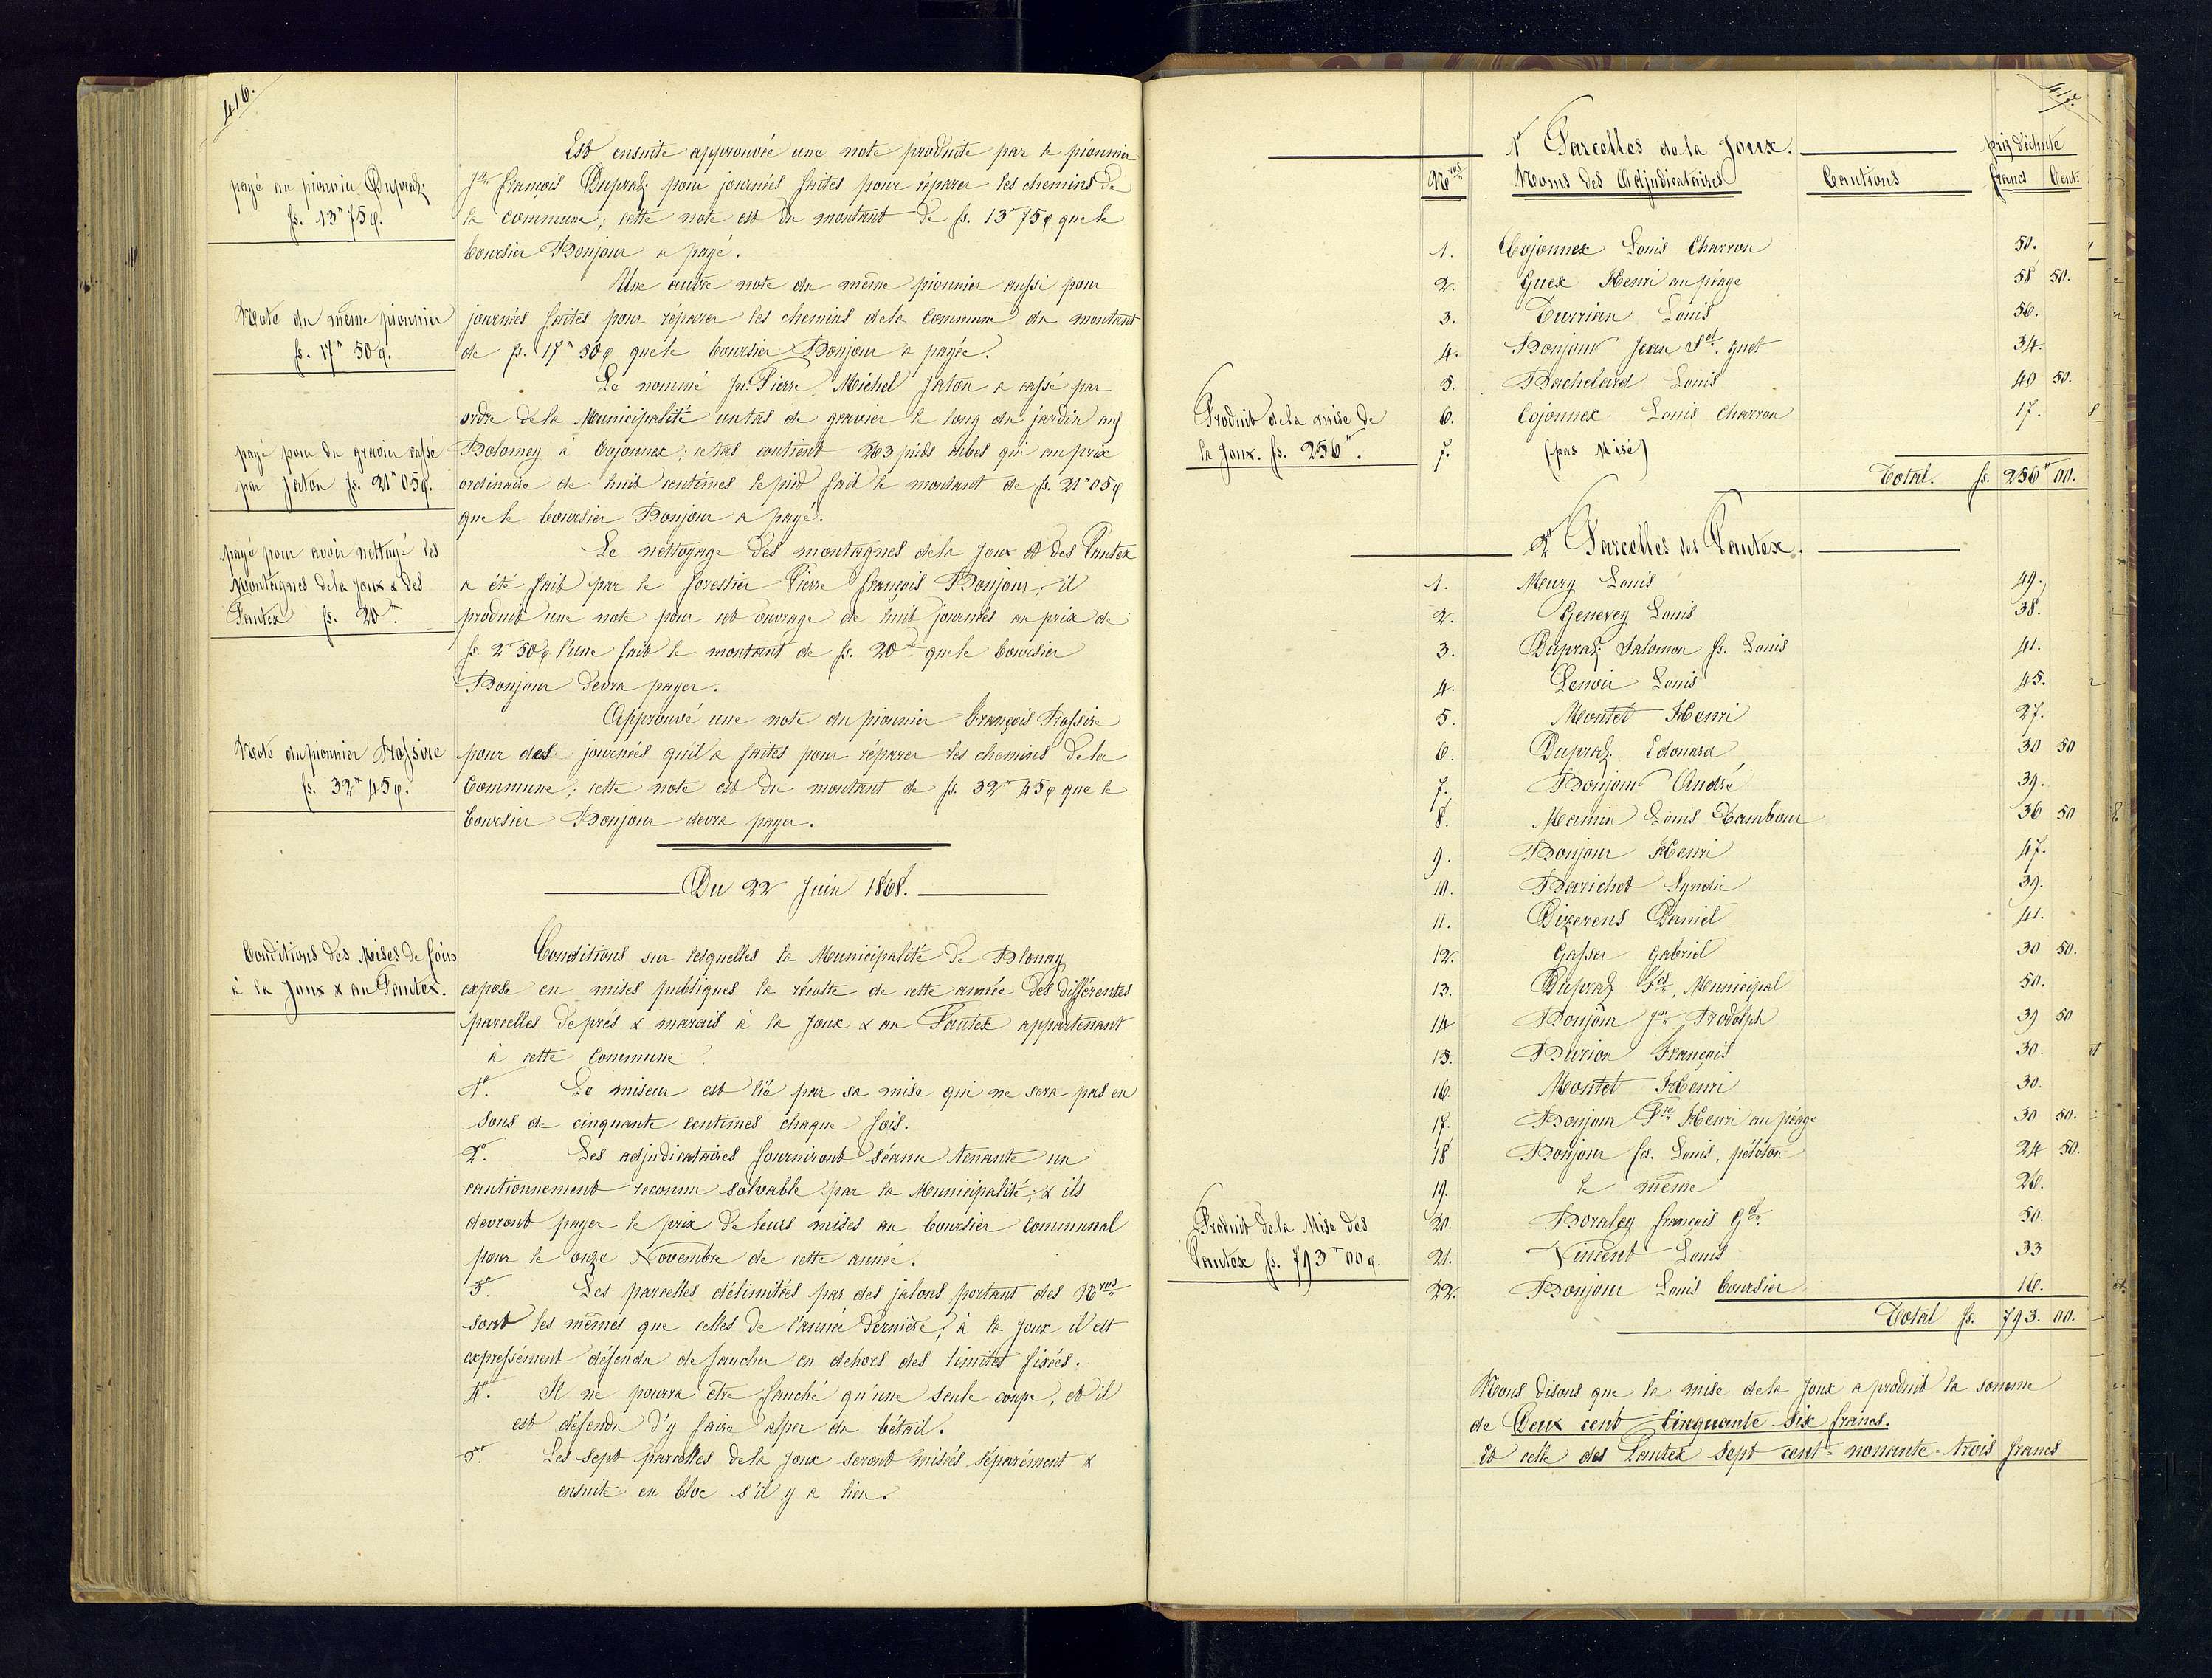 416.
Est ensuite approuvée une note produite par le pionnier
payé au pionnier Dupraz
fs. 13" 75 c.
Jn François Dupraz pour journées faites pour réparer les chemins de
la commune; cette note est du montant de fs. 13" 75 c que le
boursier Bonjour a payé.
Une autre note du même pionnier aussi pour
Note du même pionnier
fs. 17" 50 c.
journées faites pour réparer les chemins de la Commune du montant
de fs. 17" 50 c que le boursier Bonjour a payée.
Le nommé Jn Pierre Michel Jaton a cassé par
ordre de la Municipalité un tas de gravier le long du jardin aux
payé pour du gravier cassé
par Jaton fs. 21" 05 c.
Bolomey à Cojonnex; ce tas contient 263 pieds cubes qui au prix
ordinaire de huit centimes le pied fait le montant de fs. 21" 05 c
que le boursier Bonjour a payé.
payé pour avoir nettoyé les
Montagnes de la Joux & des
Pautex fs. 20"
Le nettoyage des montagnes de la Joux et des Pautex
a été fait par le forestier Pierre François Bonjour, il
produit une note pour cet ouvrage de huit journées au prix de
fs. 2" 50 c l'une fait le montant de fs. 20" que le boursier
Bonjour devra payer.
Approuvé une note du pionnier François
Note du pionnier
fs. 32" 45 c.
pour des journées qu'il a faites pour réparer les chemins de la
Commune; cette note est du montant de fs. 32" 45 c que le
boursier Bonjour devra payer.
Du 22 Juin 1868.
Conditions des Mises de foin
à la Joux & au Pautex.
Conditions sur lesquelles la Municipalité de Blonay
expose en mises publiques la récolte de cette année des différentes
parcelles de prés & marais à la Joux & au Pautex appartenant
à cette Commune
1° Le miseur est lié par sa mise qui ne sera pas en
sous de cinquante centimes chaque fois.
2° Les adjudicataires fourniront séance tenante un
cautionnement reconnu solvable par la Municipalité; & ils
devront payer le prix de leurs mises au boursier communal
pour le onze Novembre de cette année.
3° Les parcelles délimitées par des jalons portant des Nros
sont les mêmes que celles de l'année dernière; à la Joux il est
expressément défendu de faucher en dehors des limites fixées.
4° Il ne pourra être fauché qu'une seule coupe, et il
est défendu d'y faire alper du bétail.
5° Les sept parcelles de la Joux seront misées séparément &
ensuite en bloc s'il y a lieu.
417.
1° Parcelles de la Joux. prix d'échute
Nros Noms des Adjudicataires Cautions francs Cent:
1. Cojonnex Louis Charron 50.
2. Guex Henri au péage 58 50.
3. Turrian Louis 56.
4. Bonjour Jean Sel. guet 34.
5. Bachelard Louis 40 50.
6. Cojonnex Louis Charron 17.
7. (pas Misé)
Produit de la mise de
la Joux. fs. 256".
Total. fs. 256" 00.
2° Parcelles des Pautex.
1. Meury Louis 49.
2. Genevey Louis 38.
3. Dupraz Salomon fs. Louis 41.
4. Lenoir Louis 45.
5. Montet Henri 27.
6. Dupraz Edouard 30 50
7. Bonjour André 39.
8. Mamin Louis Tambour 36 50
9. Bonjour Henri 47.
10. Barichet Syndic 39.
11. Dizerens Daniel 41.
12. Gasser Gabriel 30 50.
13. Dupraz Municipal 50.
14 Bonjour Jn Rodolph 39 50
15. Burion François 30.
16. Montet Henri 30.
17. Bonjour Henri au péage 30 50.
18 Bonjour fs. Louis, 24 50.
19. le même 26.
20. François 50.
21. Vincent Louis 33
22. Bonjour Louis boursier 16.
Produit de la Mise des
Pautex fs. 793" 00 c.
Total fs. 793. 00.
Nous disons que la mise de la Joux a produit la somme
de Deux cent Cinquante Six francs.
Et celle des Pautex Sept cent-nonante-trois francs